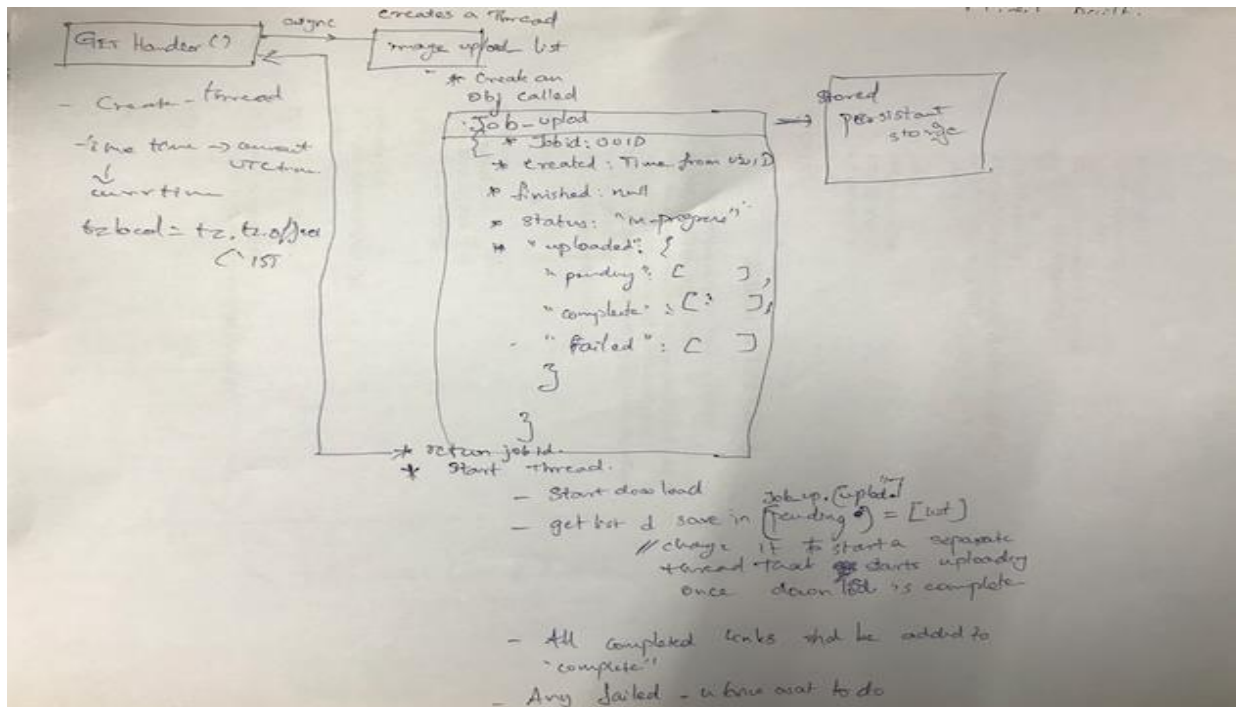 GET Handler ()
async
creates a Thread
image upload list
- Create - thread
→ current UTC time
currtime
* Create an
obj called
Job-uplod
{ * Jobid: UUID
* Created: Time from UUID
* finished: null
* status: "in-progress"
* "uploaded": {
"pending": [ ],
"complete": [ ],
- "failed": [ ]
}
}
stored
persistant
storage
* return jobid.
* Start Thread.
- Start download
- get list & save in [pending] = [list]
// change it to start a separate
thread that starts uploading
once download is complete
- All completed links shd be added to
"complete"
- Any failed - to do